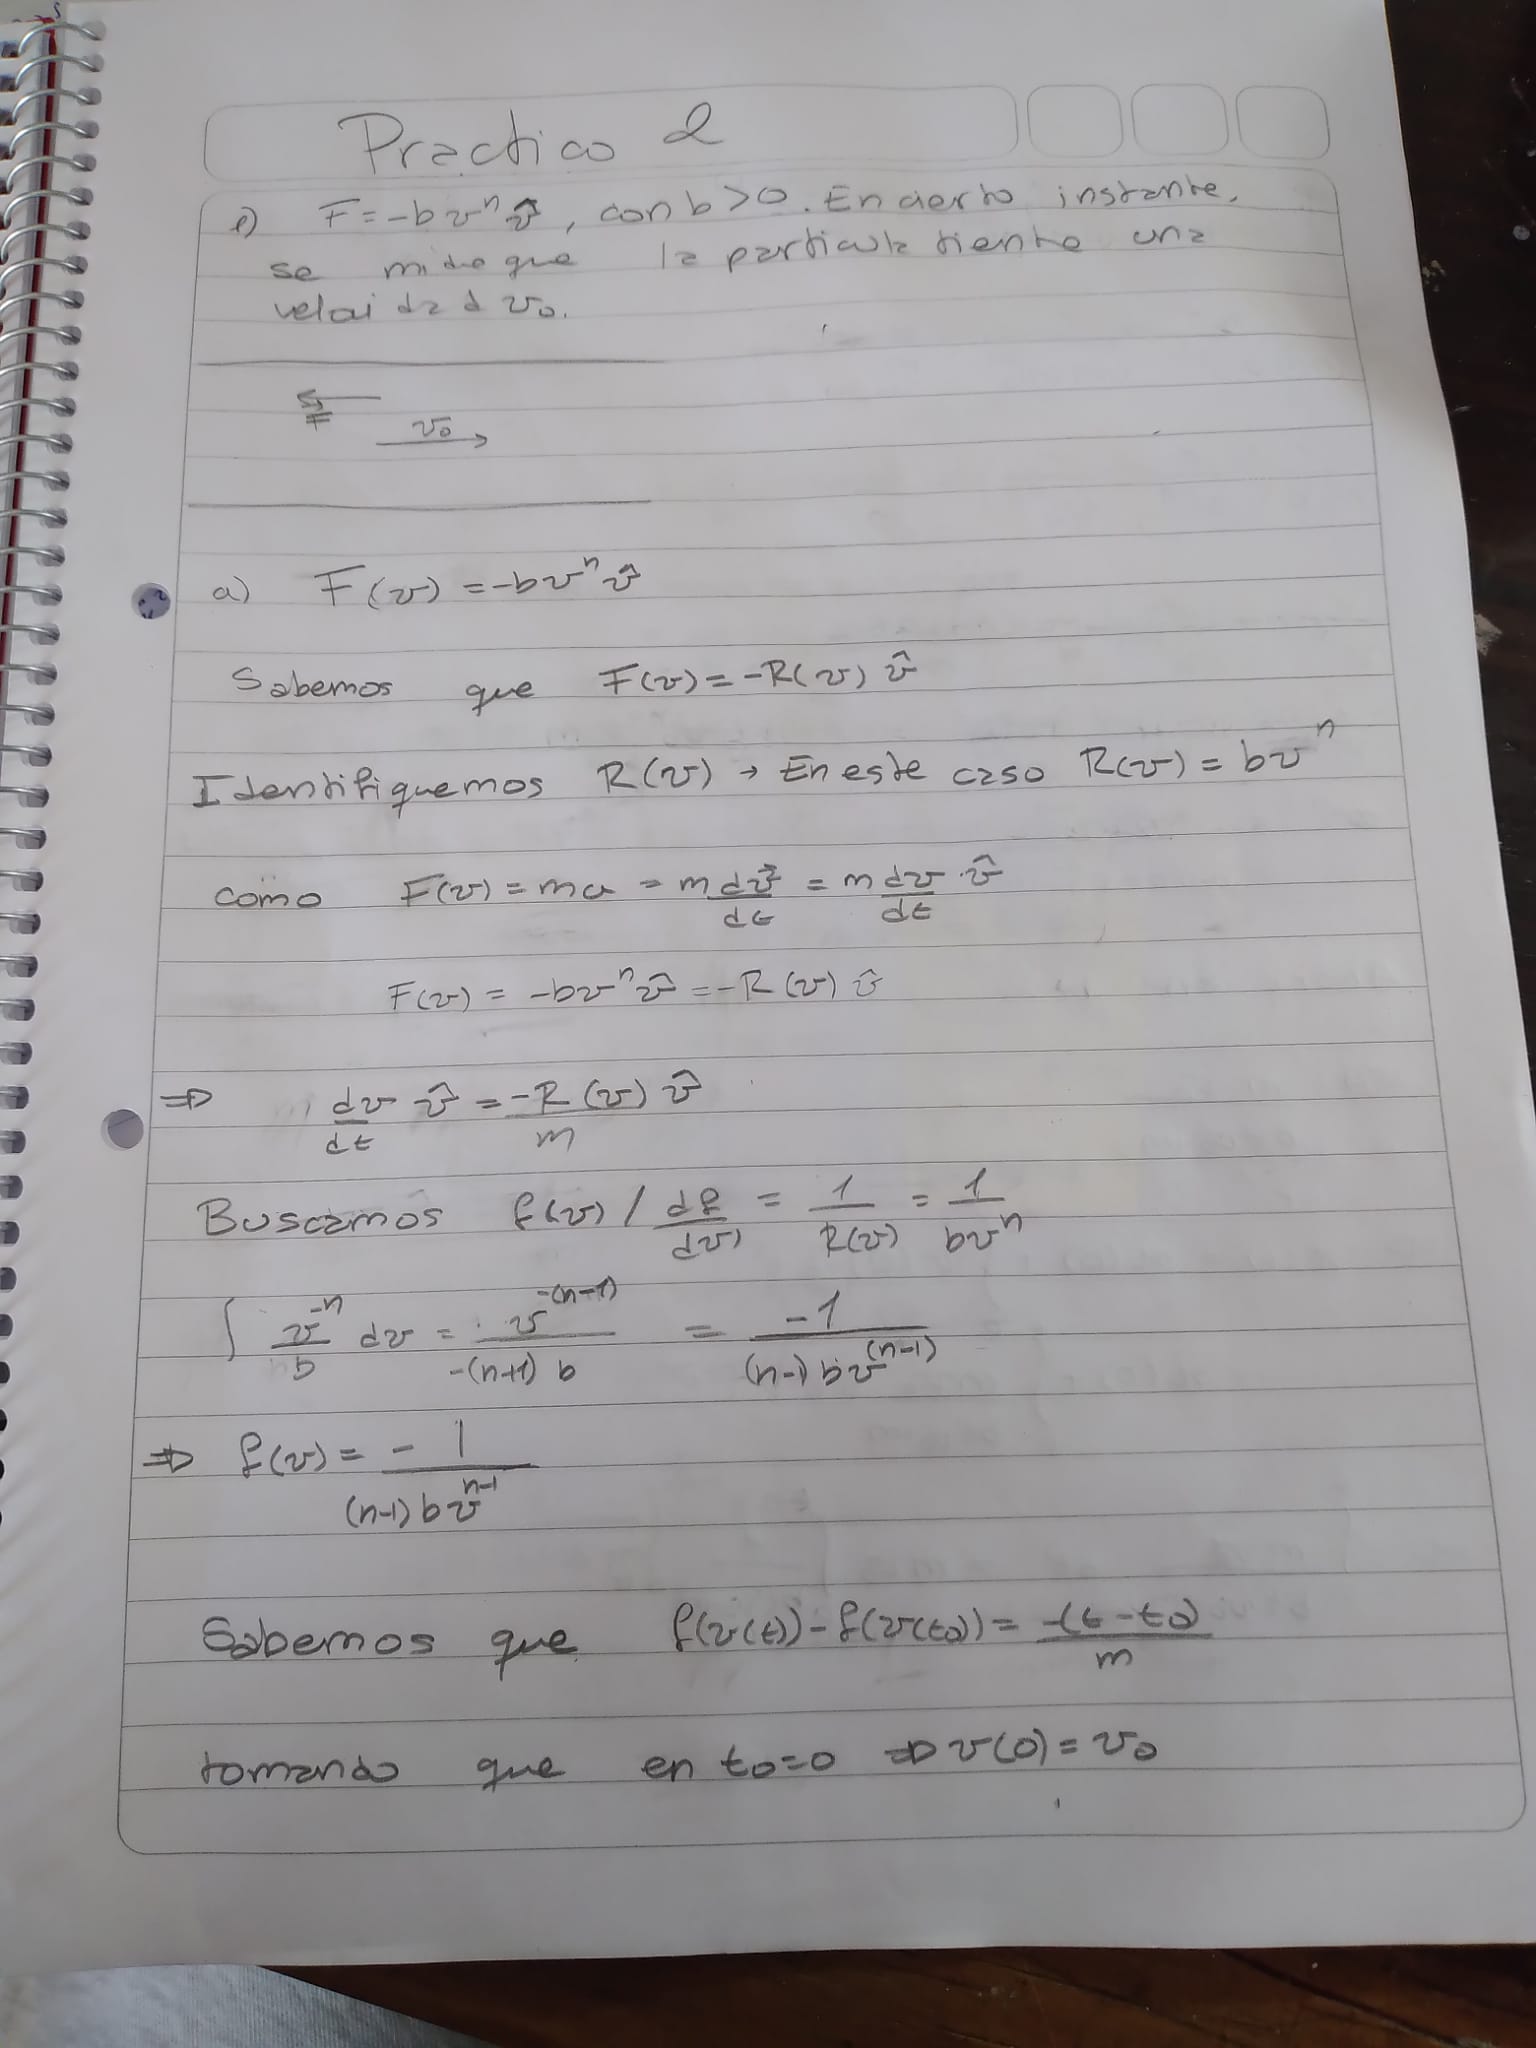 Practico 2
1) F = -b v^n v̂, con b > 0. En cierto instante,
se mide que la particula tiente una
velocidad v₀.
F
v₀
a) F(v) = -b v^n v̂
Sabemos que F(v) = -R(v) v̂
Identifiquemos R(v) → En este caso R(v) = bv^n
como F(v) = ma = m dv⃗/dt = m dv/dt · v̂
F(v) = -bv^n v̂ = -R(v) v̂
⇒ dv/dt v̂ = -R(v) v̂/m
Buscamos f(v) / df/dv = 1/R(v) = 1/bv^n
∫ v^-n/b dv = v^-(n-1)/-(n+1) b = -1/(n-1) b v^(n-1)
⇒ f(v) = - 1/(n-1) b v^n-1
Sabemos que f(v(t)) - f(v(t₀)) = -(t - t₀)/m
tomando que en t₀=0 ⇒ v(0) = v₀